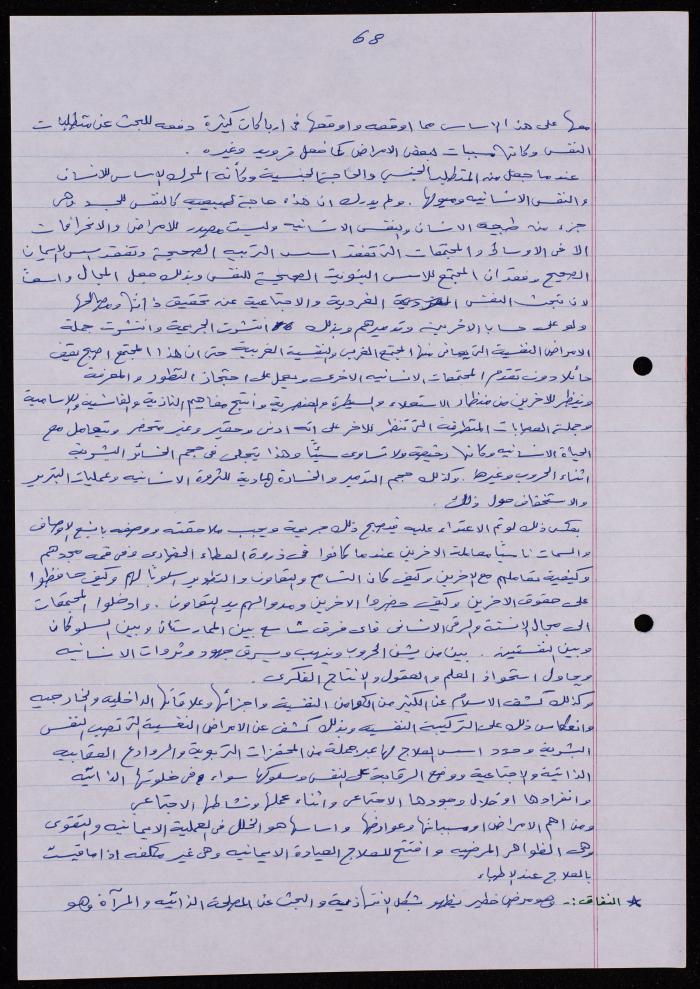 68
معها على هذا الاساس مما اوقعه واوقعها في ارباكات كثيرة دفعه للبحث عن متطلبات
النفس وكأنها مسببات لبعض الامراض كما فعل فرويد وغيره .
عندما جعل من المتطلب الجنسي والحاجة الجنسية وكأنه المحرك الاساس للانسان
والنفس الانسانيه وميولها . ولم يدرك ان هذه حاجة طبيعيه كالنفس للجسد وهي
جزء من طبيعة الانسان والنفس الانسانيه وليست مصدر للامراض والانحرافات
الا في الاوساط والمجتمعات التي تفتقد اسس التربيه الصحيحة وتفتقد اسس الايمان
الصحيح وفقدان المجتمع للاسس البنيوية الصحيحة للنفس وبذلك جعل المجال واسعاً
لان تبحث النفس الفردية والاجتماعية عن تحقيق ذاتها ومصالحها
ولو على حساب الاخرين وتدميرهم وبذلك انتشرت الجريمة وانتشرت جملة
الامراض النفسية التي يعاني منها المجتمع الغربي والنفسية الغربية حتى ان هذا المجتمع اصبح يقف
حائلا دون تقدم المجتمعات الانسانيه الاخرى ويعمل على احتجاز التطور والمعرفة
وينظر للاخرين من منظار الاستعلاء والسيطرة والعنصرية وانتج مفاهيم النازية والفاشيه واللاسامية
وجملة العصابات المتطرفة التي تنظر للاخر على انه ادنى وحقير وغير متحضر وتتعامل مع
الحياة الانسانيه وكأنها رخيصة ولا تساوي شيئاً وهذا يتجلى في حجم الخسائر البشرية
اثناء الحروب وغيرها . وكذلك حجم التدمير والخسارة المادية للثروة الانسانيه وعمليات التبرير
والاستخفاف حول ذلك .
بعكس ذلك لو تم الاعتداء عليه فيصبح ذلك جريمة ويجب ملاحقته ووصفه بابشع الاوصاف
والسمات ناسياً معاملة الاخرين عندما كانوا في ذروة العطاء الحضاري وفي قمة مجدهم
وكيفية تعاملهم مع الاخرين وكيف كان التسامح والتعاون والتطوير اسلوباً لهم وكيف حافظوا
على حقوق الاخرين وكيف حضروا الاخرين ومدوا لهم يد التعاون . وادخلوا المجتمعات
الى مجال الانسنة والرقي الانساني فأي فرق شاسع بين الممارستان وبين السلوكان
وبين النفسيتين . بين من يشن الحروب وينهب ويسرق جهود وثروات الانسانيه
ويحاول استحواذ العلم والعقول والانتاج الفكري .
وكذلك كشف الاسلام عن الكثير من الكوامن النفسية واجزائها وعلاقاتها الداخليه والخارجيه
وانعكاس ذلك على التركيبة النفسيه وبذلك كشف عن الامراض النفسية التي تصيب النفس
البشرية وحدد اسس العلاج لها عبر جملة من المحفزات التربوية والروادع العقابيه
الذاتية والاجتماعية ووضع الرقابة على النفس وسلوكها سواء في خلوتها الذاتيه
وانفرادها او خلال وجودها الاجتماعي واثناء عملها ونشاطها الاجتماعي
ومن اهم الامراض ومسبباتها وعوارضها واساسها هو الخلل في العملية الايمانيه والتقوى
وهي الظواهر المرضيه وافتتح للعلاج العيادة الايمانيه وهي غير مكلفه اذا ما قيست
بالعلاج عند الاطباء
* النفاق :- وهو مرض خطير يظهر بشكل الانتهازية والبحث عن المصلحة الذاتيه والمرآة وهو